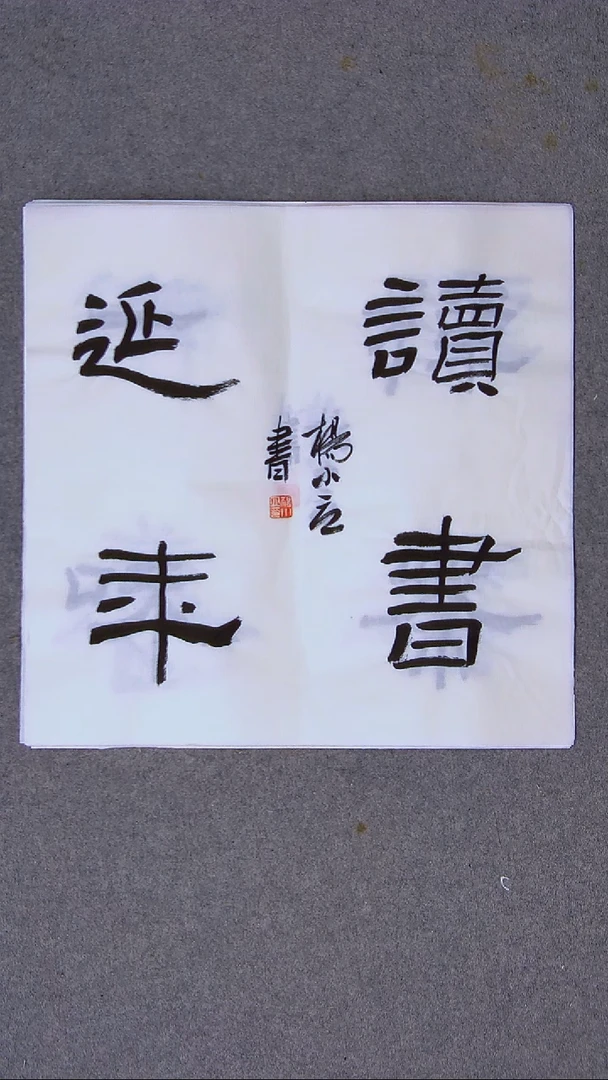 讀書
延年
楊小立
書